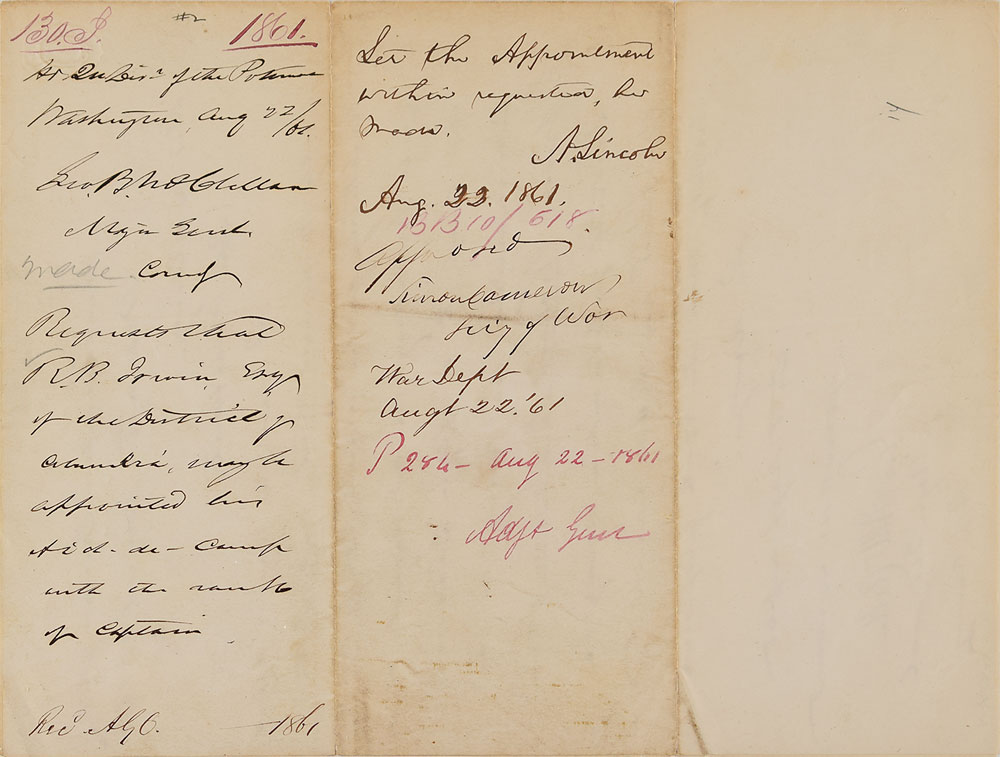 130. I. 1861.
Hd Qrs Divn of the Potomac
Washington, Aug 22/61.
Geo. B. McClellan
Major Genl.
made Comdg
Requests that
R. B. Irwin, Esq
of the District of
Columbia, may be
appointed his
Aid-de-Camp
with the rank
of Captain
Recd A.G.O. 1861
Let the Appointment
within requested, be
made.
A. Lincoln
Aug. 22. 1861.
BB 10/618.
Approved
Simon Cameron
Secy of War
War Dept
Augt 22. '61
P 284 - Aug 22 - 1861
Adjt Genl